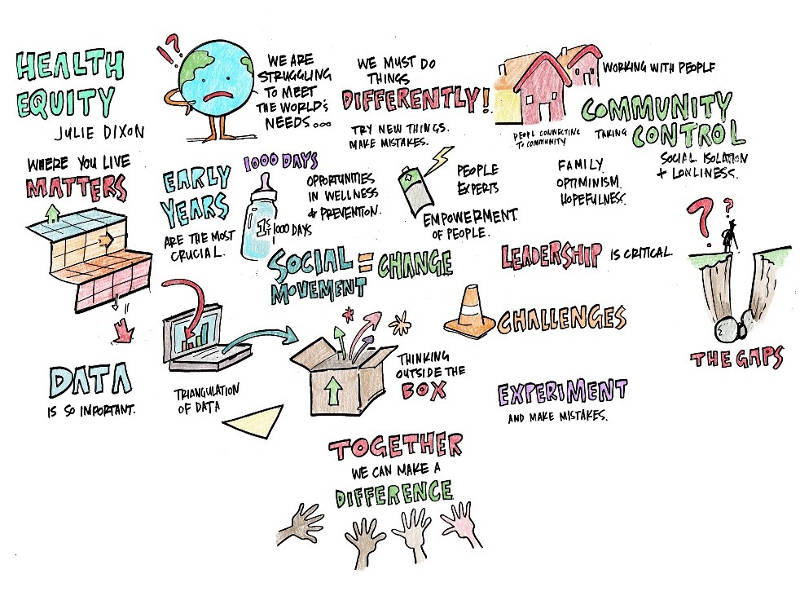 HEALTH
EQUITY
JULIE DIXON
!?
WE ARE
STRUGGLING
TO MEET
THE WORLD'S
NEEDS...
WE MUST DO
THINGS
DIFFERENTLY!
TRY NEW THINGS.
MAKE MISTAKES.
WORKING WITH PEOPLE
PEOPL CONNECTING
TO COMMUNITY
TAKING
COMMUNITY
CONTROL
SOCIAL ISOLATION
+ LONLINESS.
WHERE YOU LIVE
MATTERS
EARLY
YEARS
ARE THE MOST
CRUCIAL.
1000 DAYS
1st
1000 DAYS
OPPORTUNITIES
IN WELLNESS
+ PREVENTION.
PEOPLE
EXPERTS
EMPOWERMENT
OF PEOPLE.
FAMILY
OPTIMINISM.
HOPEFULNESS.
SOCIAL = CHANGE
MOVEMENT
LEADERSHIP IS CRITICAL
? ?
THE GAPS
DATA
IS SO IMPORTANT.
TRIANGULATION
OF DATA
THINKING
OUTSIDE THE
BOX
CHALLENGES
EXPERIMENT
AND MAKE MISTAKES.
TOGETHER
WE CAN MAKE A
DIFFERENCE